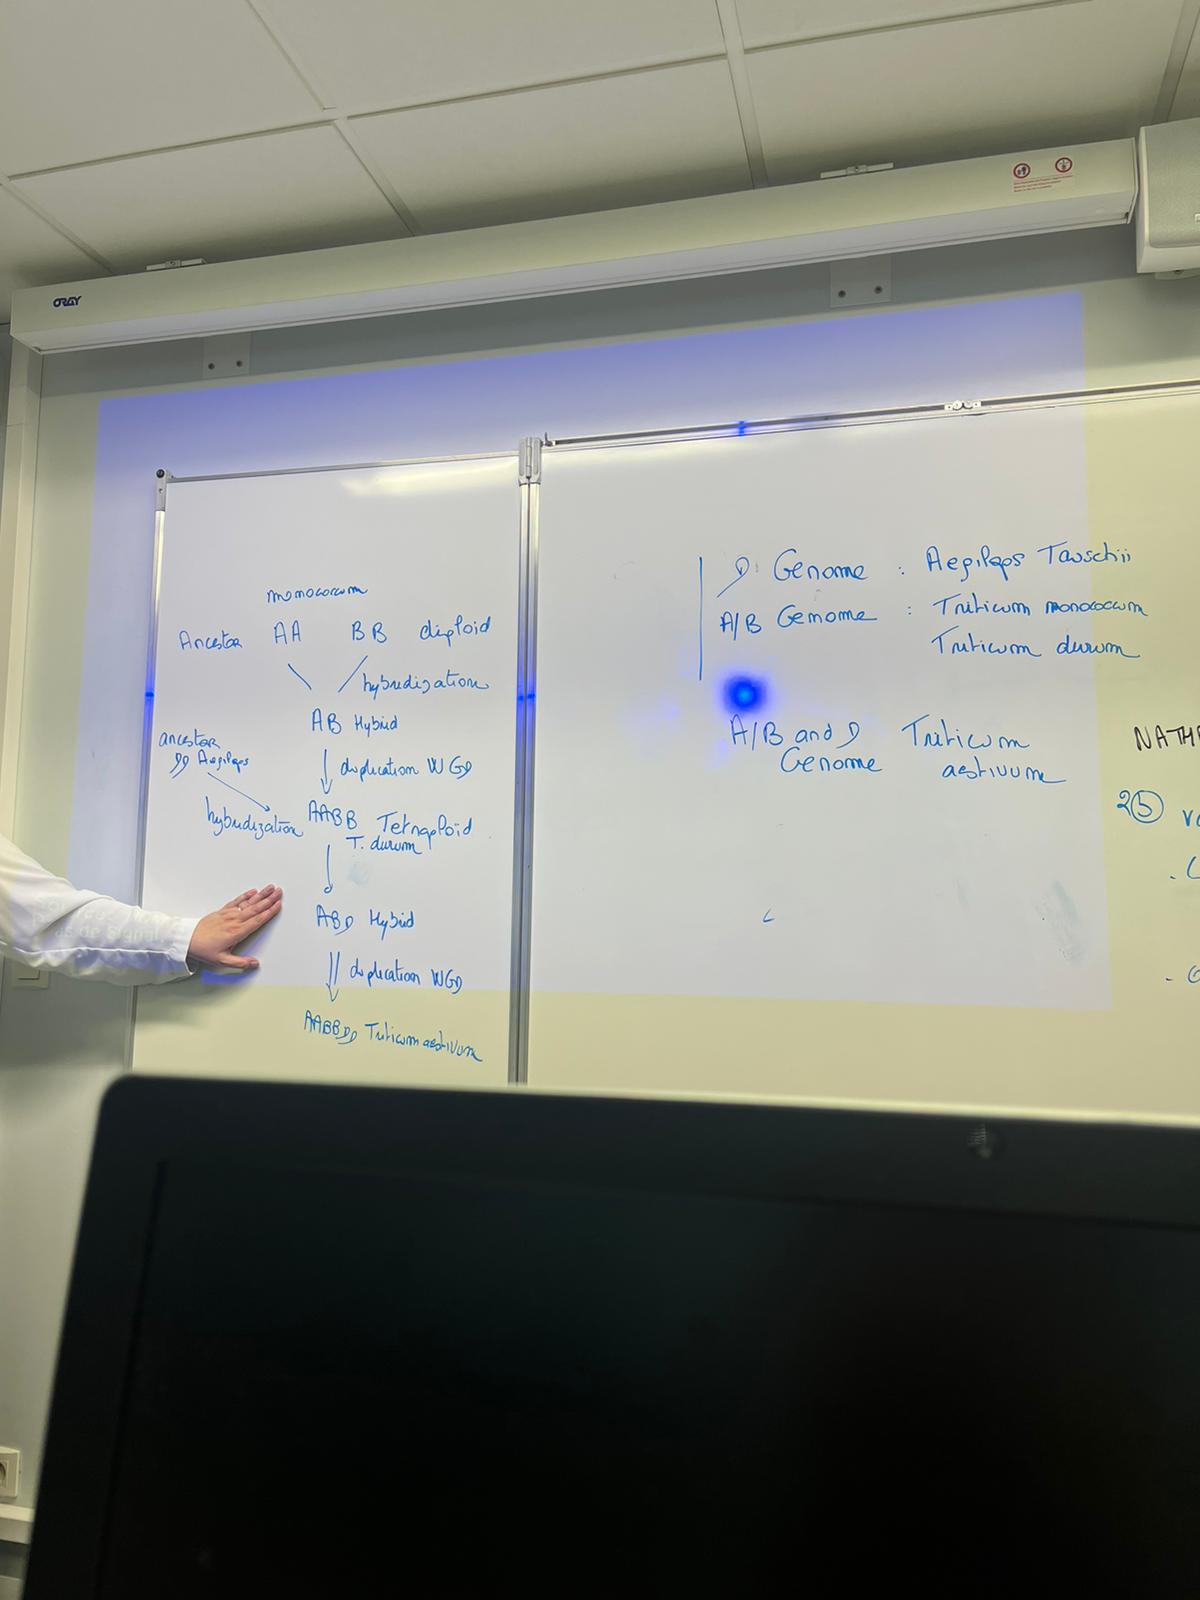 ORAY
monococcum
Ancestor AA BB diploid
hybridization
AB Hybrid
ancestor
DD Aegilops
duplication WGD
hybridization
AABB Tetraploid
T. durum
ABD Hybrid
duplication WGD
AABBDD Triticum aestivum
D Genome : Aegilops Tauschii
A/B Genome : Triticum monococcum
Triticum durum
A/B and D Triticum
Genome aestivum
2(b)